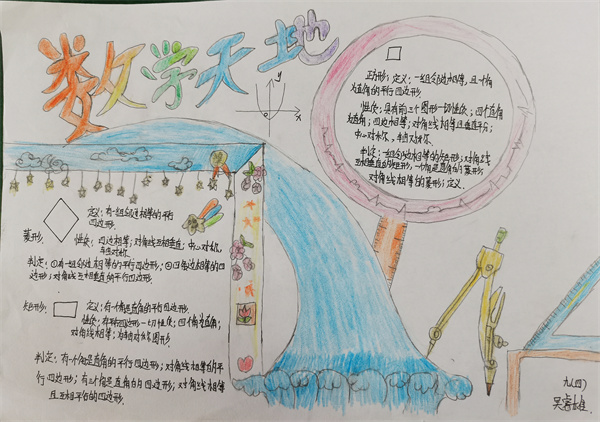 数学天地
y
x
正方形：定义：一组邻边相等，且一个角
为直角的平行四边形.
性质：具有前三个图形一切性质；四个直角
为直角；四边相等；对角线相等且垂直平分；
中心对称，轴对称.
判定：一组邻边相等的矩形；对角线
互相垂直的矩形；一个角是直角的菱形
对角线相等的菱形；定义.
定义：有一组邻边相等的平行
四边形.
菱形：
性质：四边相等；对角线互相垂直；中心对称，
轴对称.
判定：①有一组邻边相等的平行四边形；②四条边相等的四
边形；对角线互相垂直的平行四边形.
矩形：
定义：有一个角是直角的平行四边形.
性质：有平行四边形一切性质；四个角为直角；
对角线相等；为轴对称图形
判定：有一个角是直角的平行四边形；对角线相等的平
行四边形；有三个角是直角的四边形；对角线相等
且互相平分的四边形.
九(四)
吴睿雄